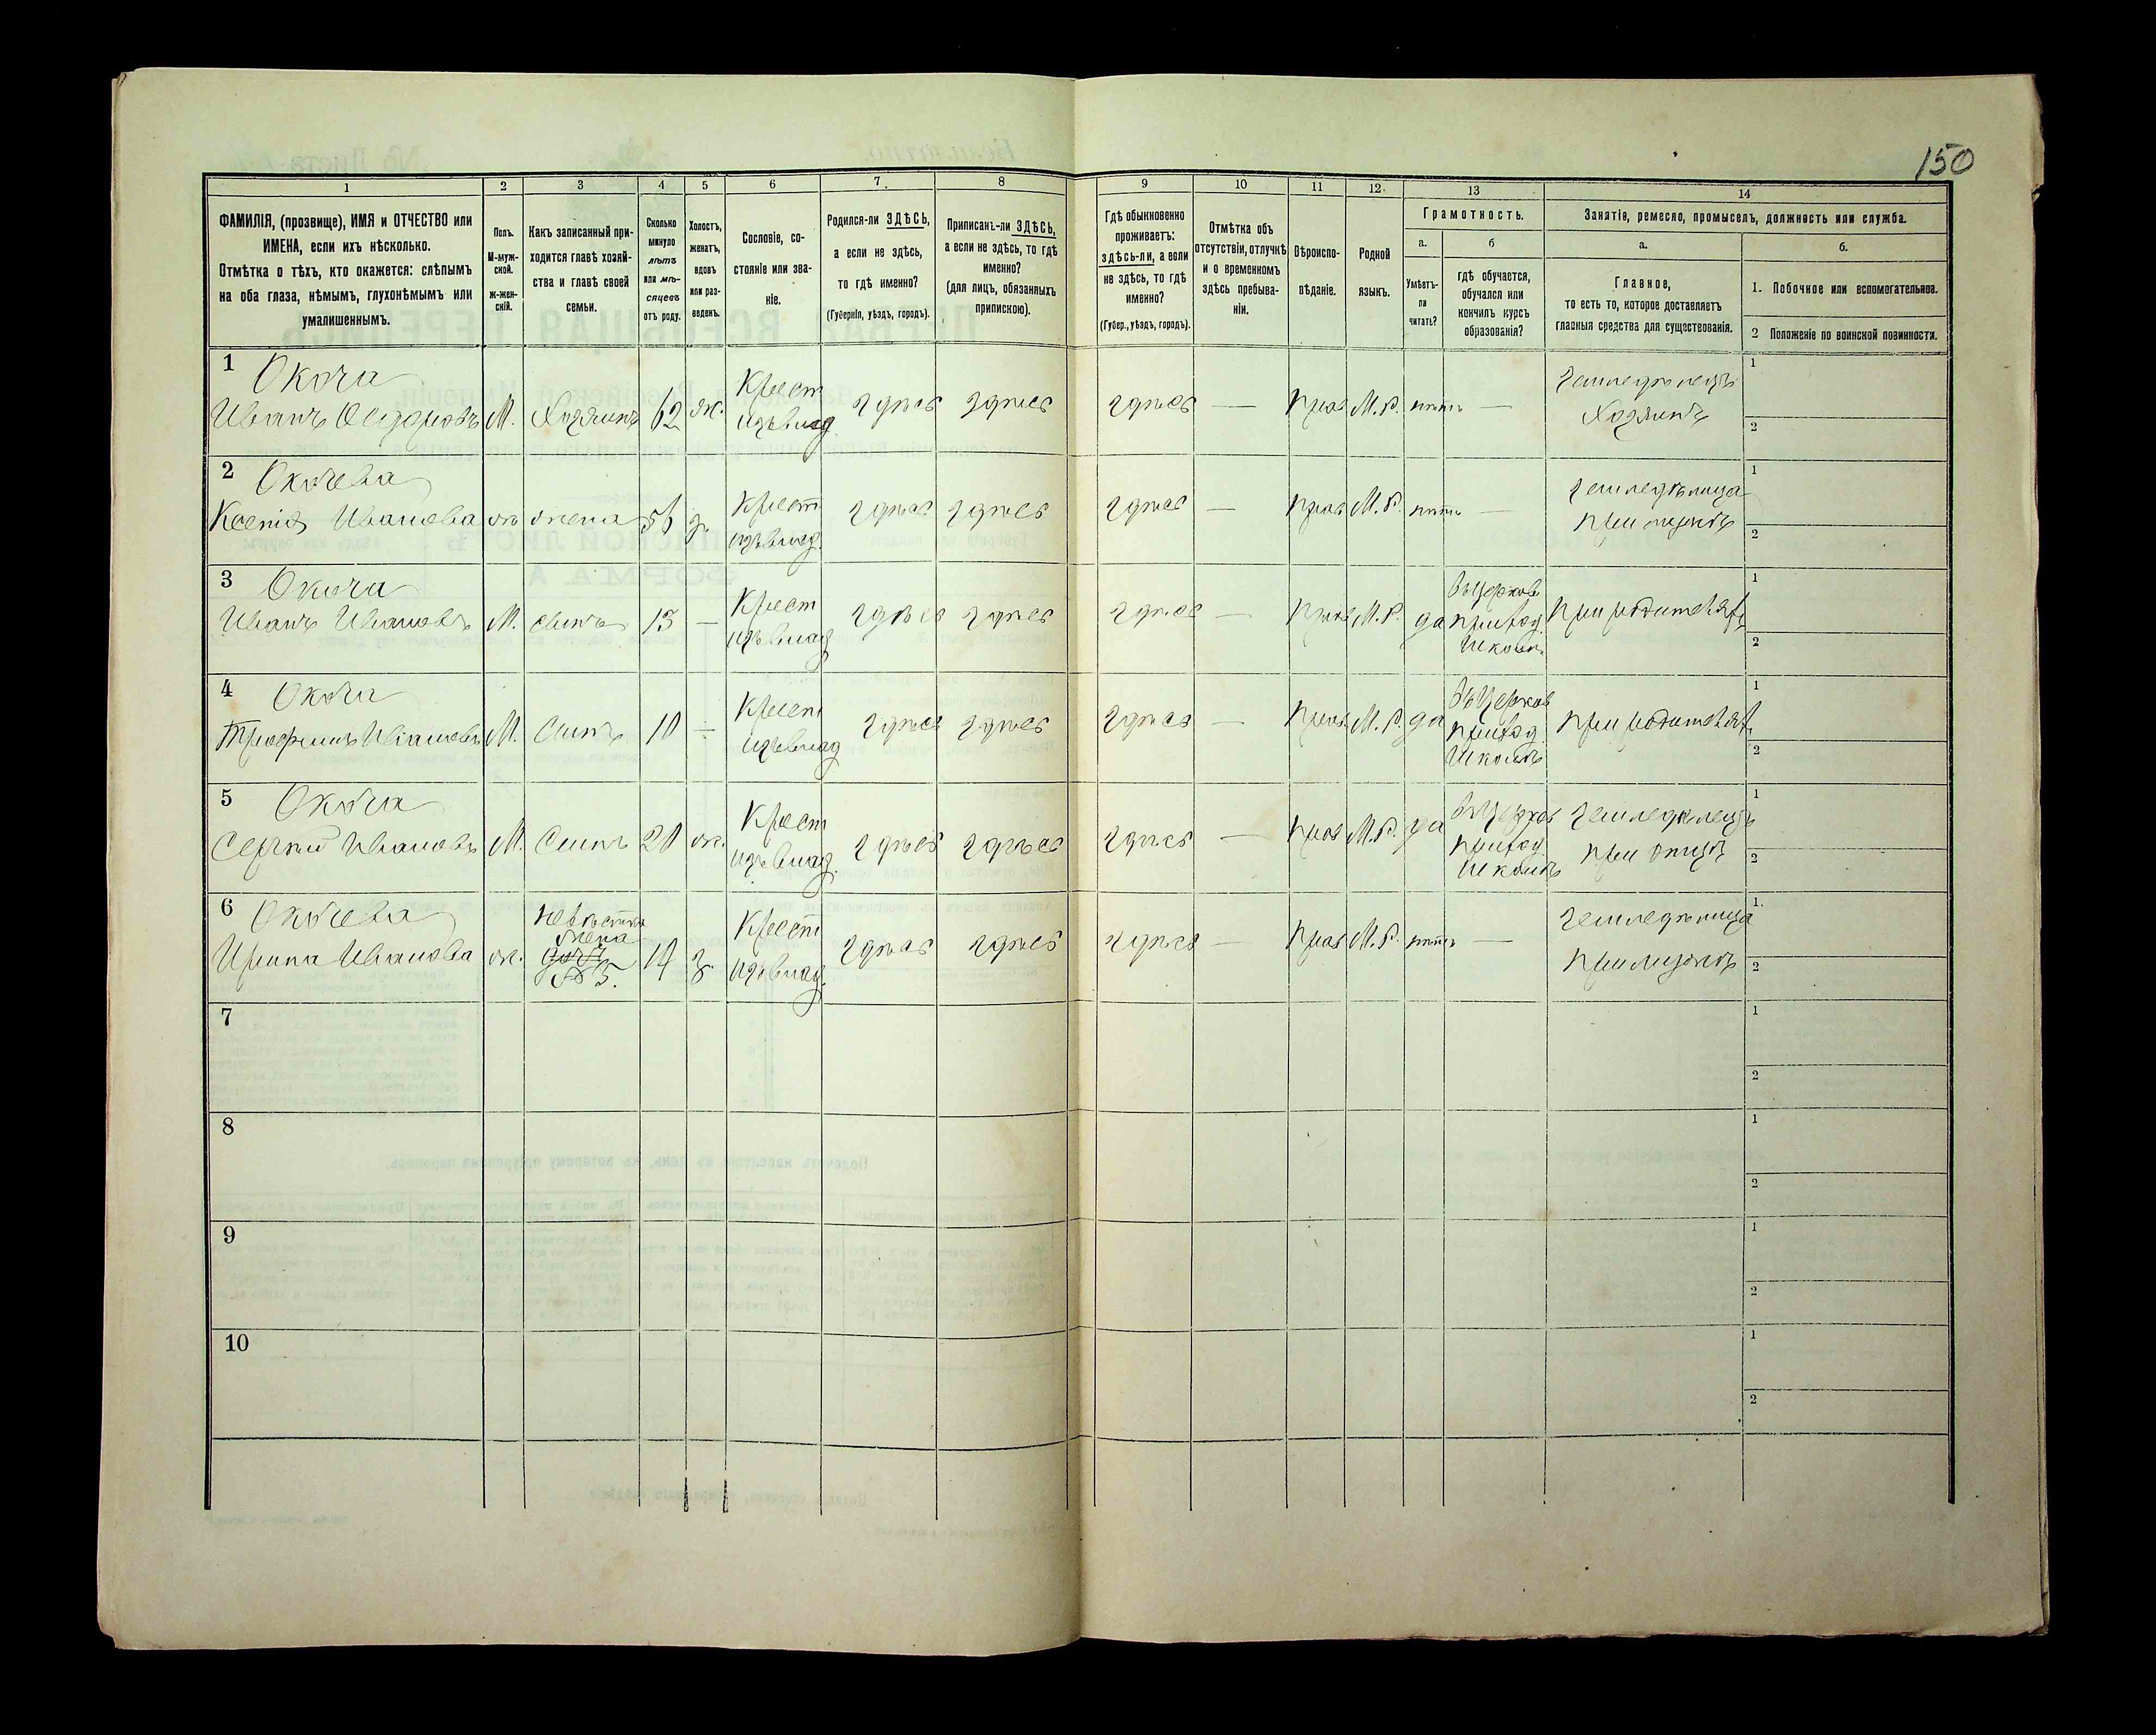 150
1 2 3 4 5 6 7. 8 9 10 11 12. 13 14
ФАМИЛІЯ, (прозвище), ИМЯ и ОТЧЕСТВО или
ИМЕНА, если ихъ нѣсколько.
Отмѣтка о тѣхъ, кто окажется: слѣпымъ
на оба глаза, нѣмымъ, глухонѣмымъ или
умалишеннымъ.
Полъ.
М-муж-
ской.
Ж-жен-
скій.
Какъ записанный при-
ходится главѣ хозяй-
ства и главѣ своей
семьи.
Сколько
минуло
лѣтъ
или мѣ-
сяцевъ
отъ роду.
Холостъ,
женатъ,
вдовъ
или раз-
веденъ.
Сословіе, со-
стояніе или зва-
ніе.
Родился-ли ЗДѢСЬ,
а если не здѣсь,
то гдѣ именно?
(Губернія, уѣздъ, городъ).
Приписанъ-ли ЗДѢСЬ,
а если не здѣсь, то гдѣ
именно?
(для лицъ, обязанныхъ
припискою).
Гдѣ обыкновенно
проживаетъ:
здѣсь-ли, а если
не здѣсь, то гдѣ
именно?
(Губер., уѣздъ, городъ).
Отмѣтка объ
отсутствіи, отлучкѣ
и о временномъ
здѣсь пребыва-
ніи.
Вѣроиспо-
вѣданіе.
Родной
языкъ.
Грамотность.
а.
Умѣетъ-
ли
читать?
б
гдѣ обучается,
обучался или
кончилъ курсъ
образованія?
Занятія, ремесло, промыселъ, должность или служба.
а.
Главное,
то есть то, которое доставляетъ
главныя средства для существованія.
б.
1. Побочное или вспомогательное.
2 Положеніе по воинской повинности.
1
Окоча
Иванъ
М. Хозяинъ 62 ж.
Крест
изъ влад.
здѣсь здѣсь здѣсь — Прав М.Р. нѣтъ —
Земледѣлецъ
Хозяинъ
1
2
2
Окочева
Ксенія Иванова
ж жена 56 з.
Крест
изъ влад.
здѣсь здѣсь здѣсь — Прав М.Р. нѣтъ —
Земледѣлица
при мужѣ
1
2
3
Окоча
Иванъ Ивановъ
М. сынъ 13 —
Крест
изъ влад
здѣсь здѣсь здѣсь — Прав М.Р. да
въ Церков
приход.
Школѣ
При родителяхъ
1
2
4
Окоча
Трофимъ Ивановъ
М. Сынъ 10 —
Крест
изъ влад
здѣсь здѣсь здѣсь — Прав. М.Р. да
въ Церков
приход.
Школѣ
При родителях
1
2
5
Окоча
Сергѣй Ивановъ
М. Сынъ 20 ж.
Крест
изъ влад.
здѣсь здѣсь здѣсь — Прав М.Р. да
въ Церков
приход
Школѣ
Земледѣлецъ
при отцѣ
1
2
6
Окочева
Ирина Иванова
ж.
невѣстка
жена
№ 5.
19 з.
Крест
изъ влад.
здѣсь здѣсь здѣсь — Прав М.Р. нѣтъ —
Земледѣлица
При мужѣ
1.
2
7
1
2
8
1
2
9
1
2
10
1
2